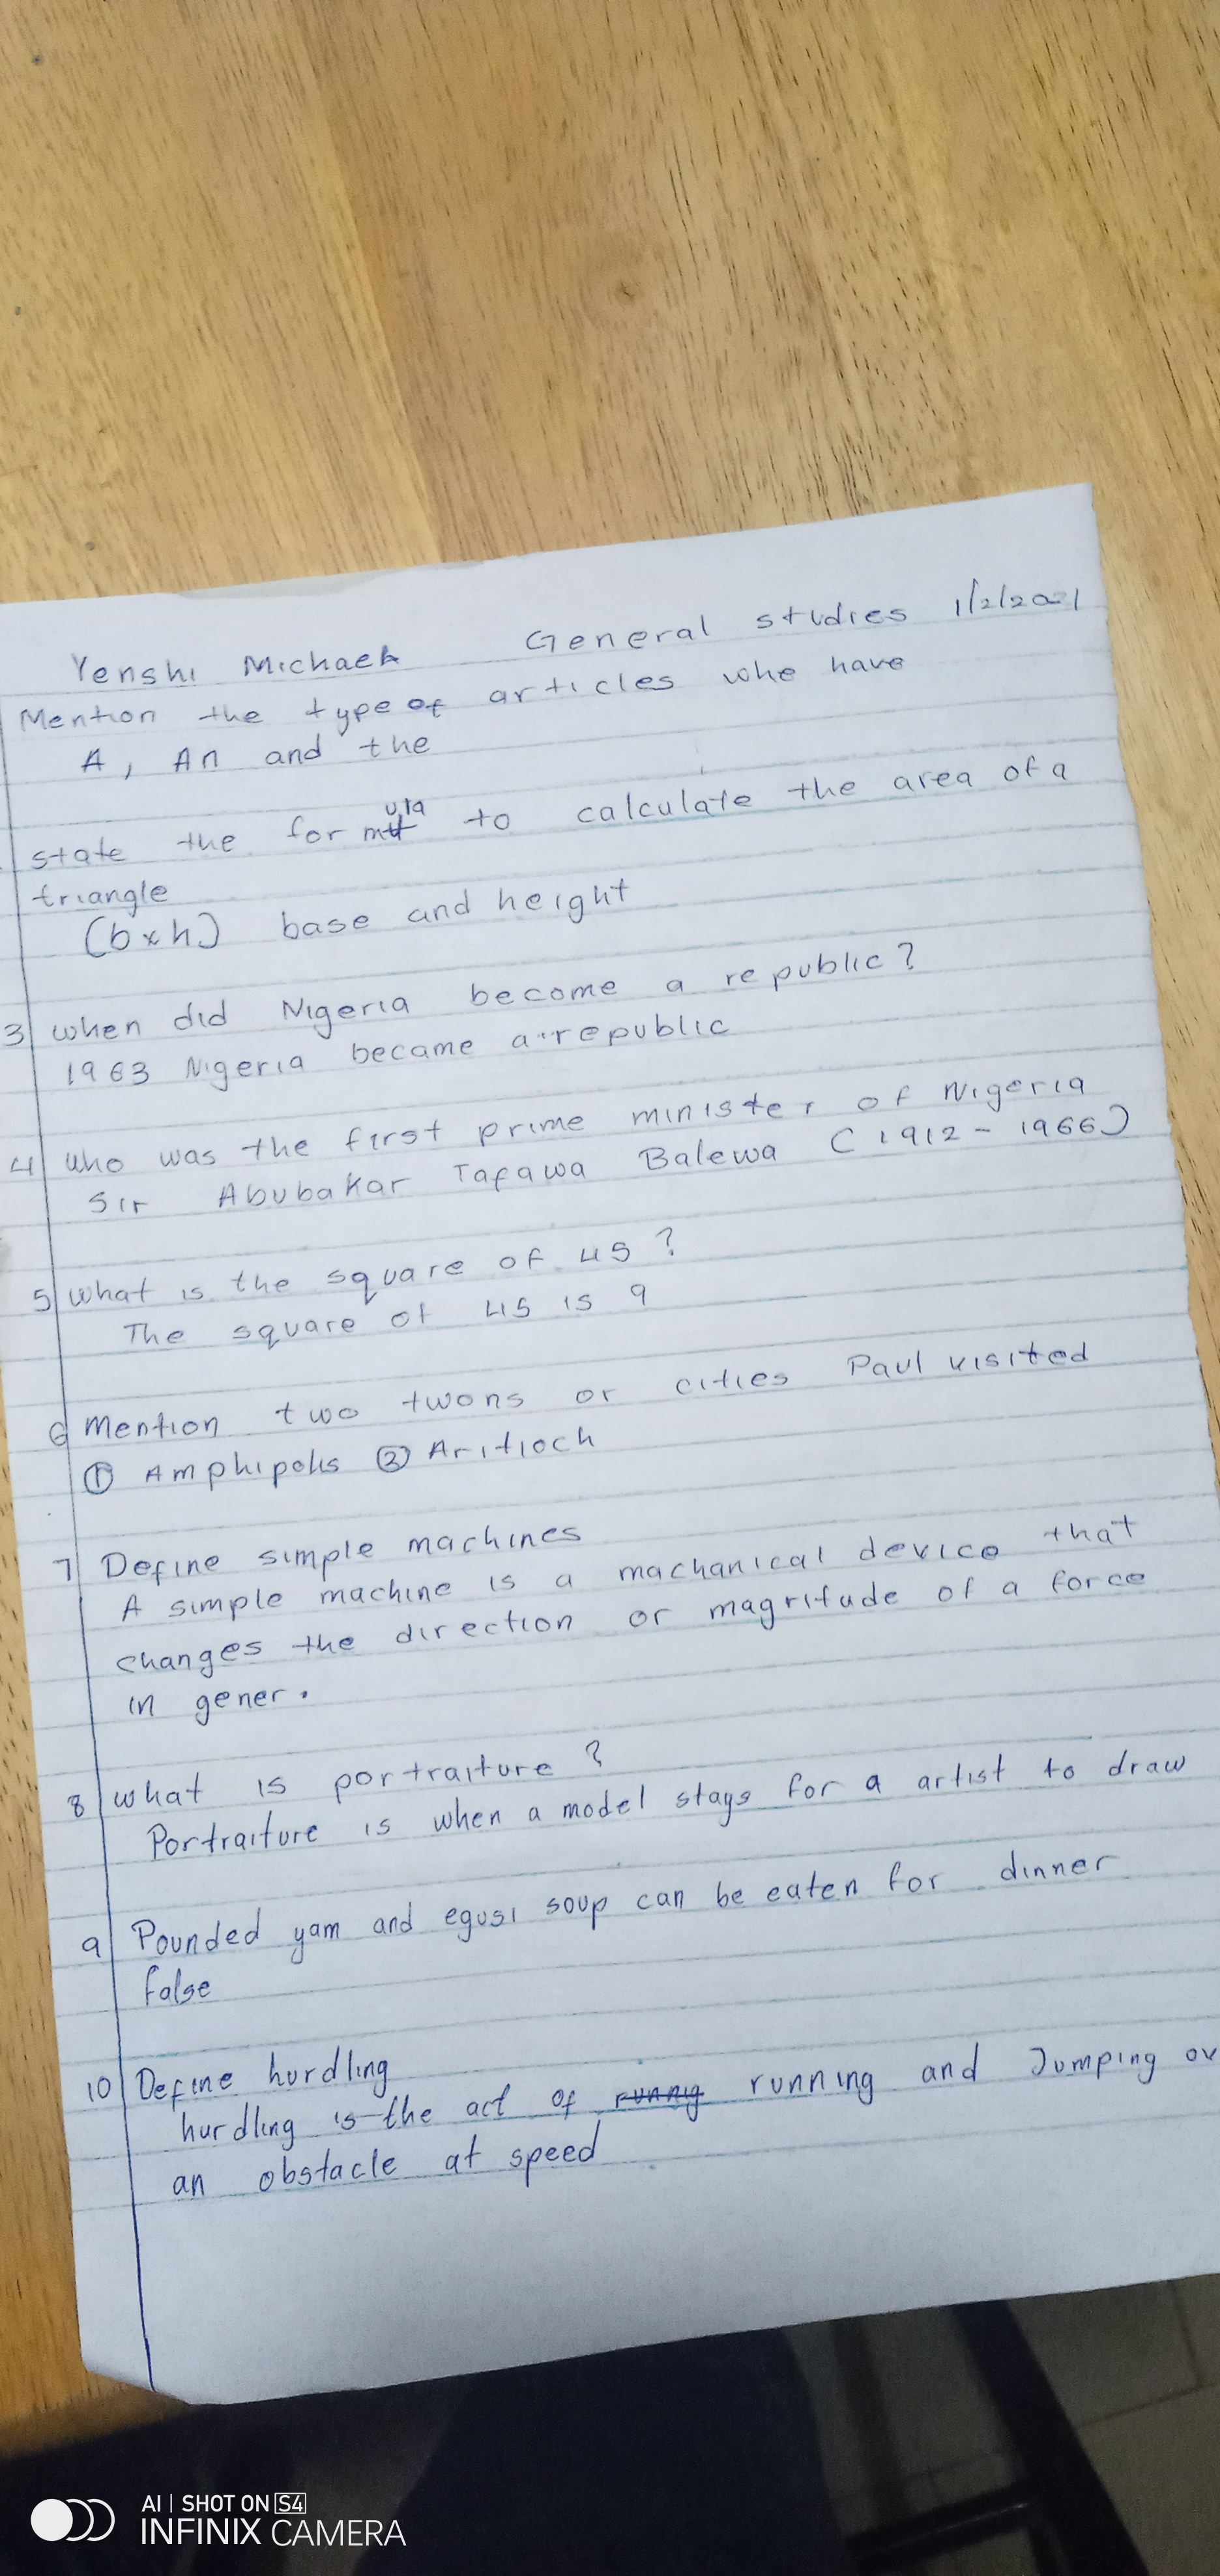 Yenshi Michael General studies 1/2/2021
Mention the type of articles who have
A, An and the
state the formula to calculate the area of a
triangle
(b x h) base and height
3 when did Nigeria become a republic?
1963 Nigeria became a republic
4 who was the first prime minister of Nigeria
Sir Abubakar Tafawa Balewa (1912 - 1966)
5 What is the square of 45?
The square of 45 is 9
6 Mention two twons or cities Paul visited
① Amphipolis ② Aritioch
7 Define simple machines
A simple machine is a machanical device that
changes the direction or magritude of a force
in gener.
8 what is portraiture?
Portraiture is when a model stays for a artist to draw
9 Pounded yam and egusi soup can be eaten for dinner
false
10 Define hurdling
hurdling is the act of runnig running and Jumping ov
an obstacle at speed
AI | SHOT ON S4
INFINIX CAMERA